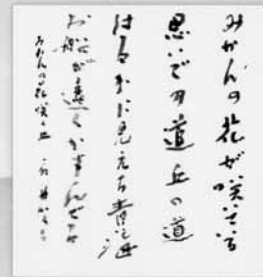 みかんの花が咲いている
思い出の道丘の道
はるかに見える青い海
お船が遠くかすんでる
みかんの花咲く丘